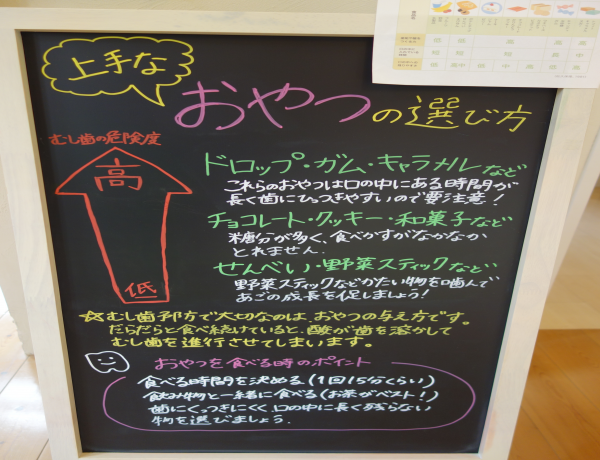 上手な
おやつの選び方
むし歯の危険度
高
低
ドロップ・ガム・キャラメルなど
これらのおやつは口の中にある時間が
長く歯にひっつきやすいので要注意!
チョコレート・クッキー・和菓子など
糖分が多く、食べかすがなかなか
とれません。
せんべい・野菜スティックなど
野菜スティックなどかたい物を噛んで
あごの成長を促しましょう!
☆むし歯予防で大切なのは、おやつの与え方です。
だらだらと食べ続けていると、酸が歯を溶かして
むし歯を進行させてしまいます。
おやつを食べる時のポイント
食べる時間を決める(1回15分くらい)
飲み物と一緒に食べる(お茶がベスト!)
歯にくっつきにくく、口の中に長く残らない
物を選びましょう。